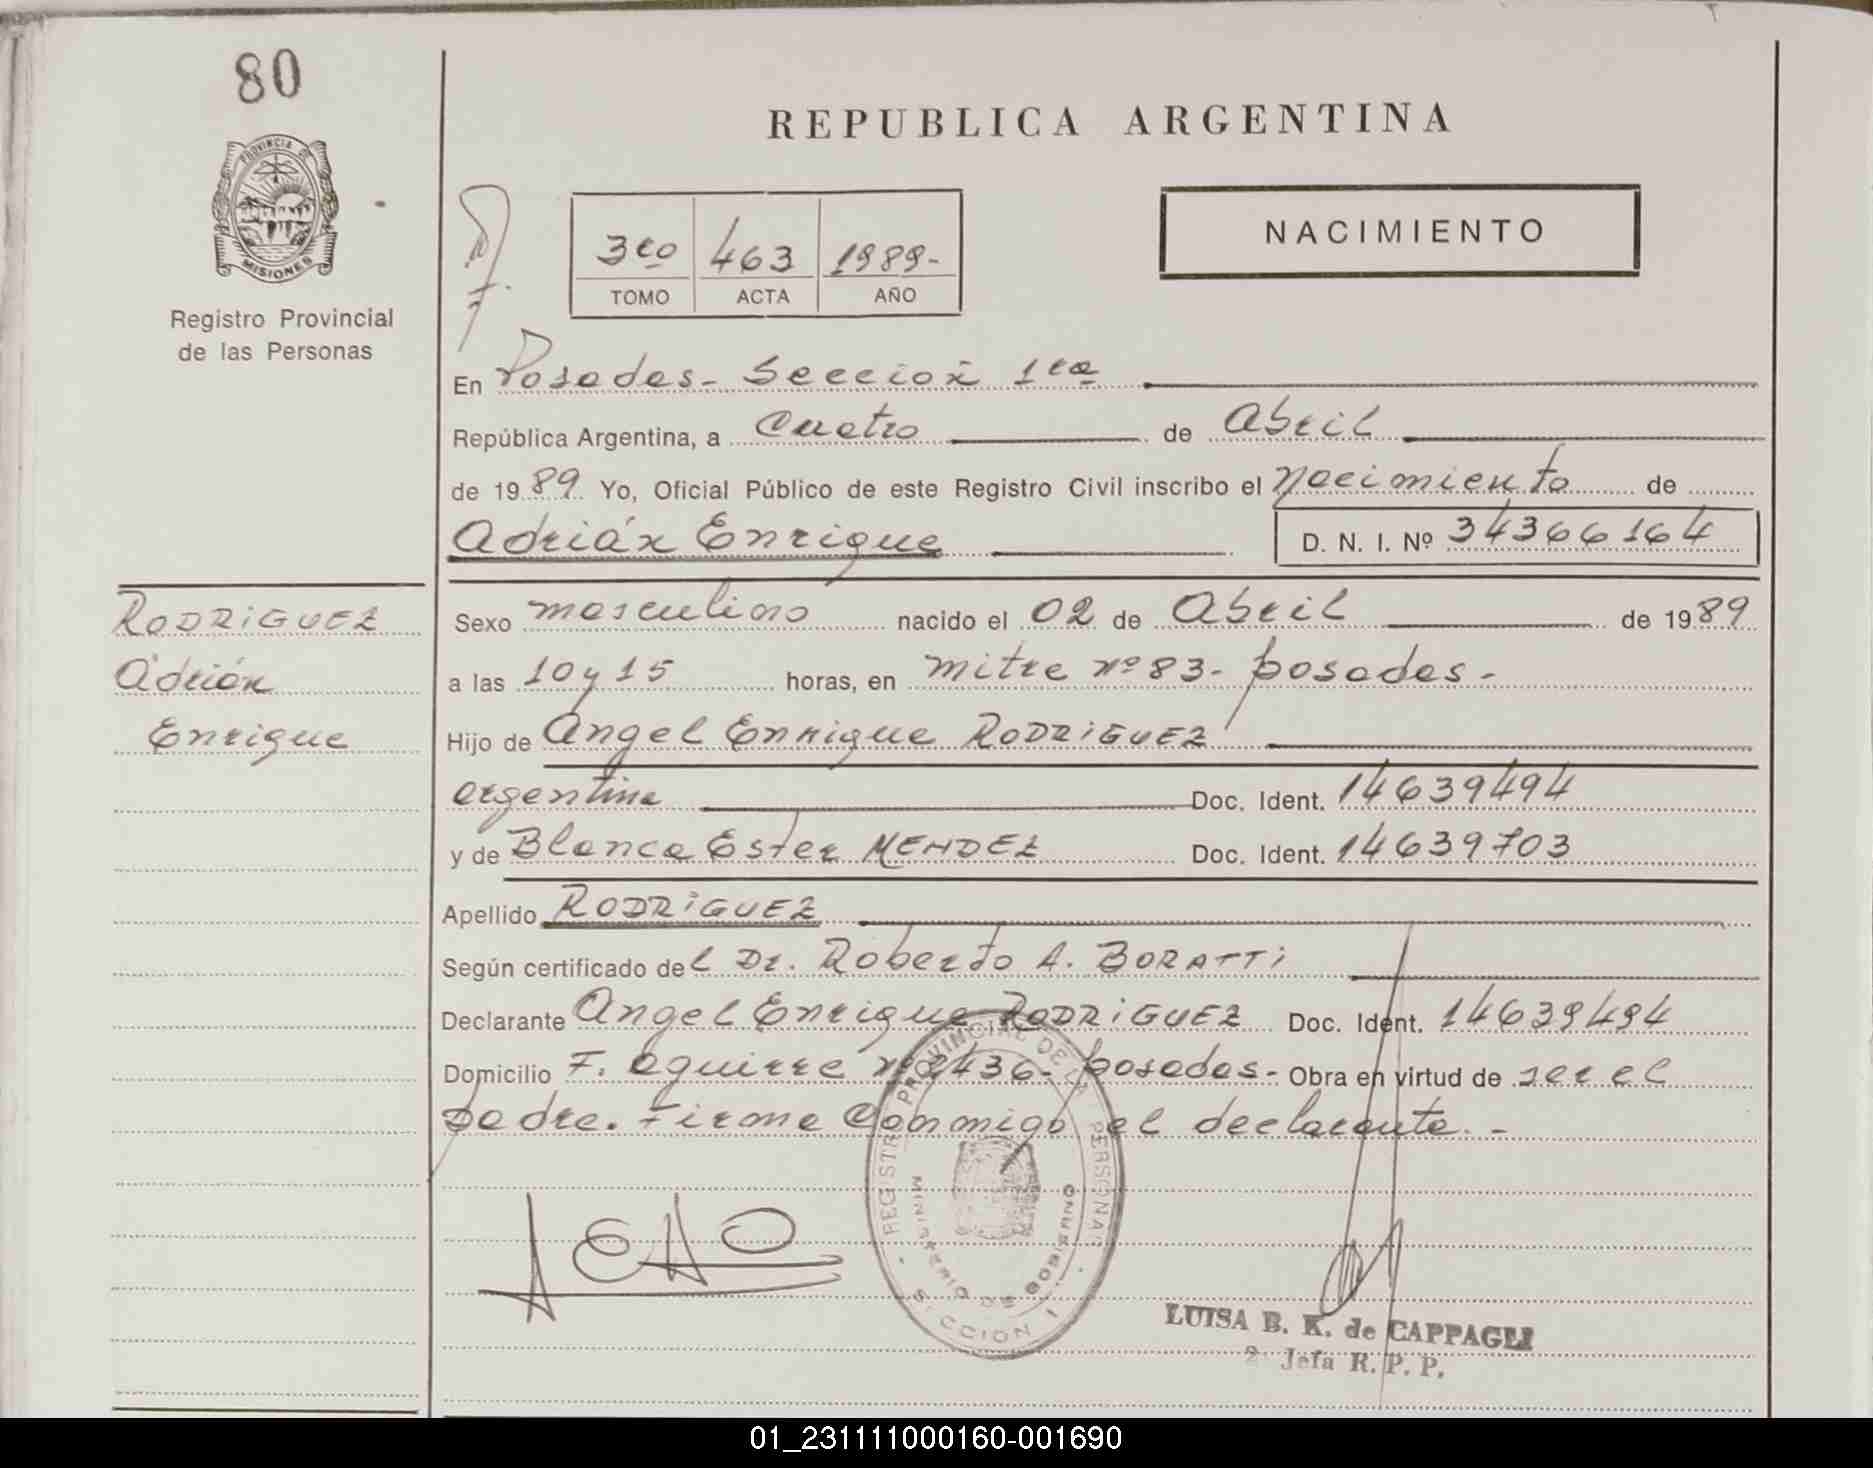 80
REPUBLICA ARGENTINA
PROVINCIA DE
MISIONES
Registro Provincial
de las Personas
3ro 463 1989-
TOMO ACTA AÑO
NACIMIENTO
En Posadas- Sección 1ra
República Argentina, a Cuatro de Abril
de 1989 Yo, Oficial Público de este Registro Civil inscribo el Nacimiento de
Adrián Enrique D. N. I. Nº 34366164
RODRIGUEZ
Adrián
Enrique
Sexo masculino nacido el 02 de Abril de 1989
a las 10 y 15 horas, en mitre nº 83- posadas-
Hijo de Angel Enrique RODRIGUEZ
argentina Doc. Ident. 14639494
y de Blanca Ester MENDEZ Doc. Ident. 14639703
Apellido RODRIGUEZ
Según certificado del Dr. Roberto A. BORATTI
Declarante Angel Enrique RODRIGUEZ Doc. Ident. 14639494
Domicilio F. aguirre nº 2436- posadas- Obra en virtud de ser el
padre. Firma Conmigo el declarante.-
REGISTRO PROVINCIAL DE LAS PERSONAS
MINISTERIO DE GOBIERNO
SECCION 1
LUISA B. K. de CAPPAGLI
2ª Jefa R. P. P.
01_231111000160-001690